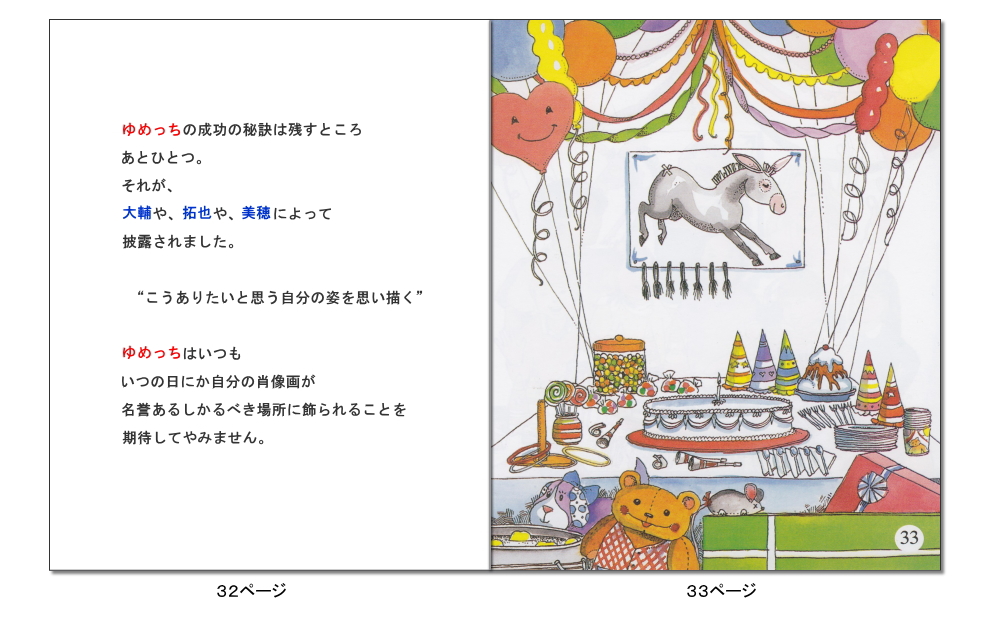 ゆめっちの成功の秘訣は残すところ
あとひとつ。
それが、
大輔や、拓也や、美穂によって
披露されました。
“こうありたいと思う自分の姿を思い描く”
ゆめっちはいつも
いつの日にか自分の肖像画が
名誉あるしかるべき場所に飾られることを
期待してやみません。
33
32ページ
33ページ